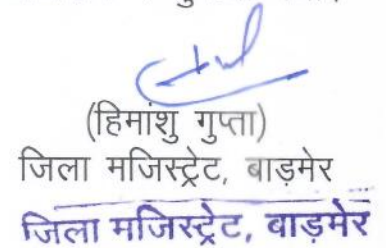 (हिमांशु गुप्ता)
जिला मजिस्ट्रेट, बाड़मेर
जिला मजिस्ट्रेट, बाडमेर